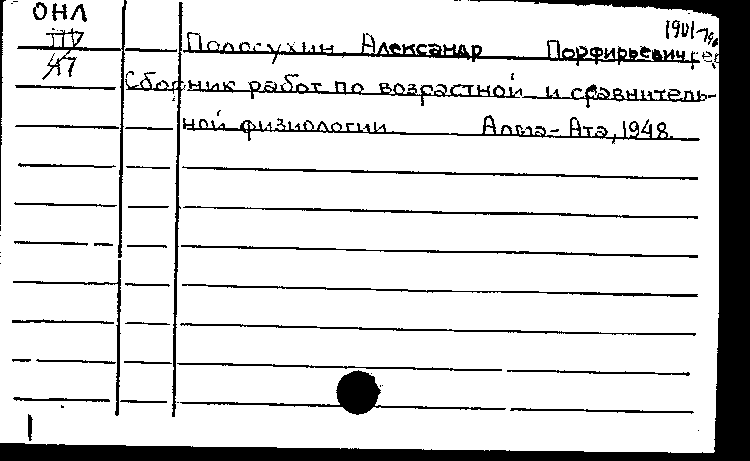 ОНЛ
Полосухин, Александр Порфирьевич, ред.
47
Сборник работ по возрастной и сравнитель-
ной физиологии Алма-Ата, 1948.